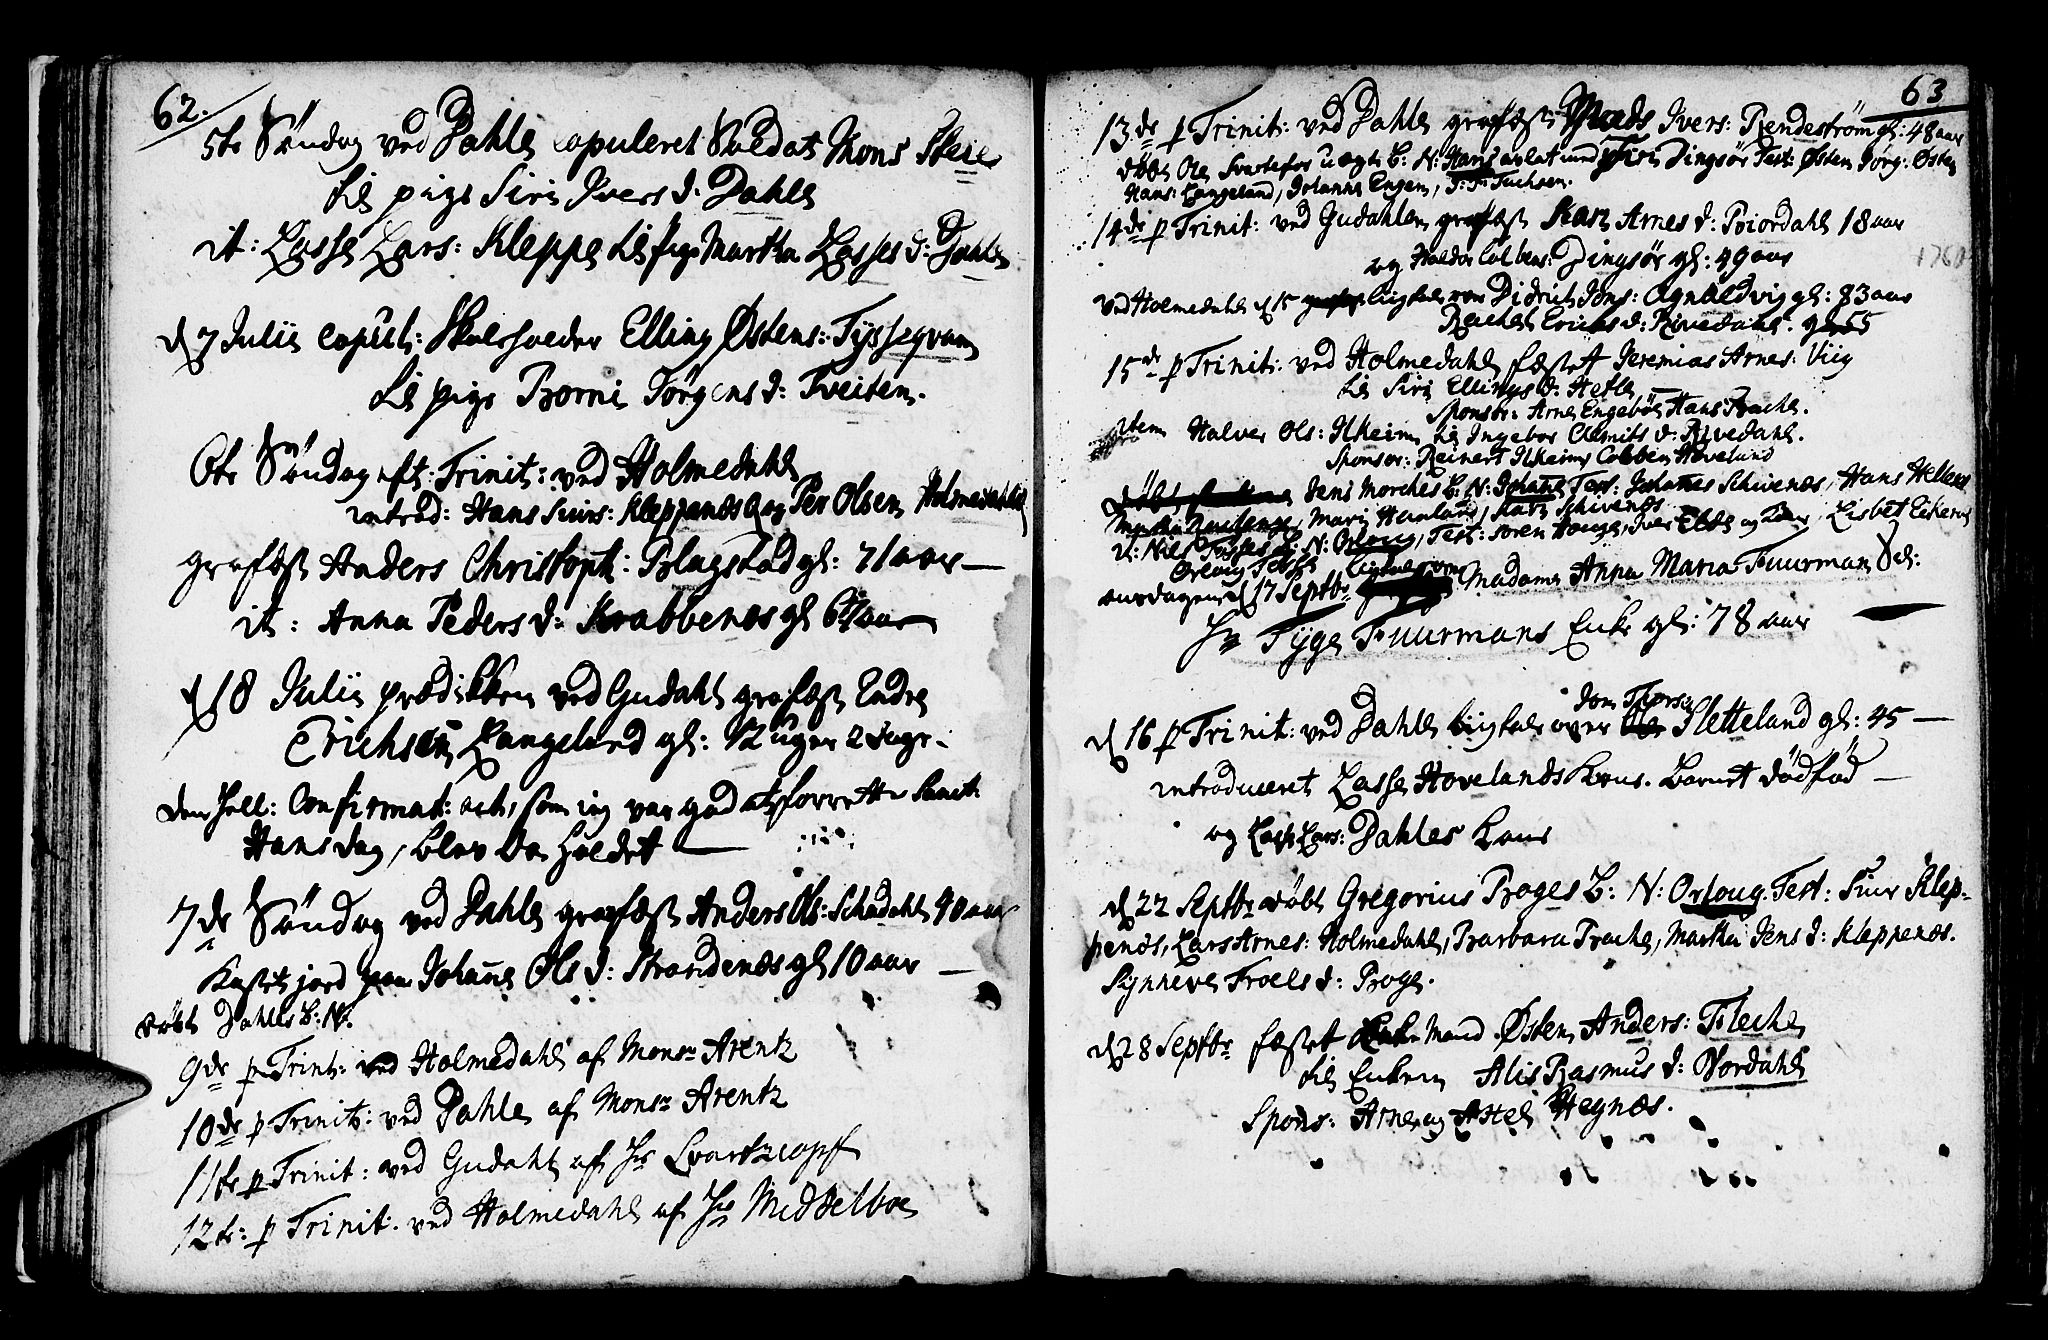 62.
5te Søndag ved Dahle Copuleret Soldat Mons Steie
til pige Siri Ivers d: Dahle
it: Lasse Lars: Kleppe til pige Martha Lasses d: Dahle
d 7 Julii Copul: Skoleholder Elling Østens: Tyssegvam
til pige Borni Jørgens d: Tveiten.
6te Søndag eft: Trinit: ved Holmedahl
introd: Hans Siurs: Kleppenæs og Per Olsen Holmedahl
grafæst Anders Christoph: Blagstad gl: 71 aar —
it: Anna Peders d: Krabbenæs gl aar
d 18 Julii prædikken ved Gudahl grafæst Endre
Erichsen Langeland gl: 12 uger 2 dage.
den Confirmat: act, som ieg var god at forrette Sanct
Hans dag, blev da holdet —
7de Søndag ved Dahle grafæst Anders Ols: Schadahl 40 aar
Kastet jord paa Johanne Ols d: Strandenæs gl 10 aar —
døbt Dahles B: N:
9de p Trinit: ved Holmedahl af Monsr Arentz
10de p Trinit: ved Dahle af Monsr Arentz
11te p Trinit: ved Gudahl af Hr Svartzcopf
12te: p Trinit. ved Holmedahl af Hr Middelboe
63
13de p Trinit: ved Dahle grafæst Mads Ivers: Rendestrøm gl: 48 aar
døbt Ole Svartefos uægte B: N: Hans avlat med Siri Dingsør Test: Østen Jørg: Østen
Hans: Langeland, Johanne Engen, Fuchsen.
14de p Trinit: ved Gudahlen grafæst Kari Arnes d: Biordahl 18 aar
1760
og Haldor Colbens: Dingsør gl: 49 aar
ved Holmedahl d 15 liigtale over Didrich Jons: Agnaldvig gl: 83 aar
Rachel Erichs d: Rivedahl. gl 55
15de p Trinit: ved Holmedahl fæstet Jeremias Arnes: Viig
til Siri Ellings d: Hetle
Sponsor: Arne Engebøe Hans Brache.
item Halver Ols: Ilheim til Ingebor Clemits d: Rivedahl.
Sponsor: Reinert Ilheim Colben Hoveland
Jens Morches B: N: Johans Test: Johannes Schivenæs, Hans Hellene
Mari Humland, Kari Schivenæs
d: Niels Tysses B: N: Orloug, Test: Soren Hauge, Iver og Lisbet Eikene
Orloug Tysse
onsdagen d 17 Septbr liigtale over Madame Anna Maria Fuurman Sal:
Hr Tyge Fuurmans Enke gl: 78 aar
d 16 p Trinit: ved Dahle liigtale over Jon Thorsen Sletteland gl: 45 —
introduceret Lasse Hovelands Kone. Barnet dødfød —
og Lasse Lars: Dahles Kone
d 22 Septbr døbt Gregorius Boges B: N: Orloug. Test: Siur Klep-
penæs, Lars Arnes: Holmedahl, Barbara Brache, Martha Jens d: Kleppenæs.
Synneve Troels d: Boge.
d 28 Septbr fæstet Enke Mand Østen Anders: Fleche
til Enken Alis Rasmus d: Nordahl
Spons: Arne og Axel Hegnæs.